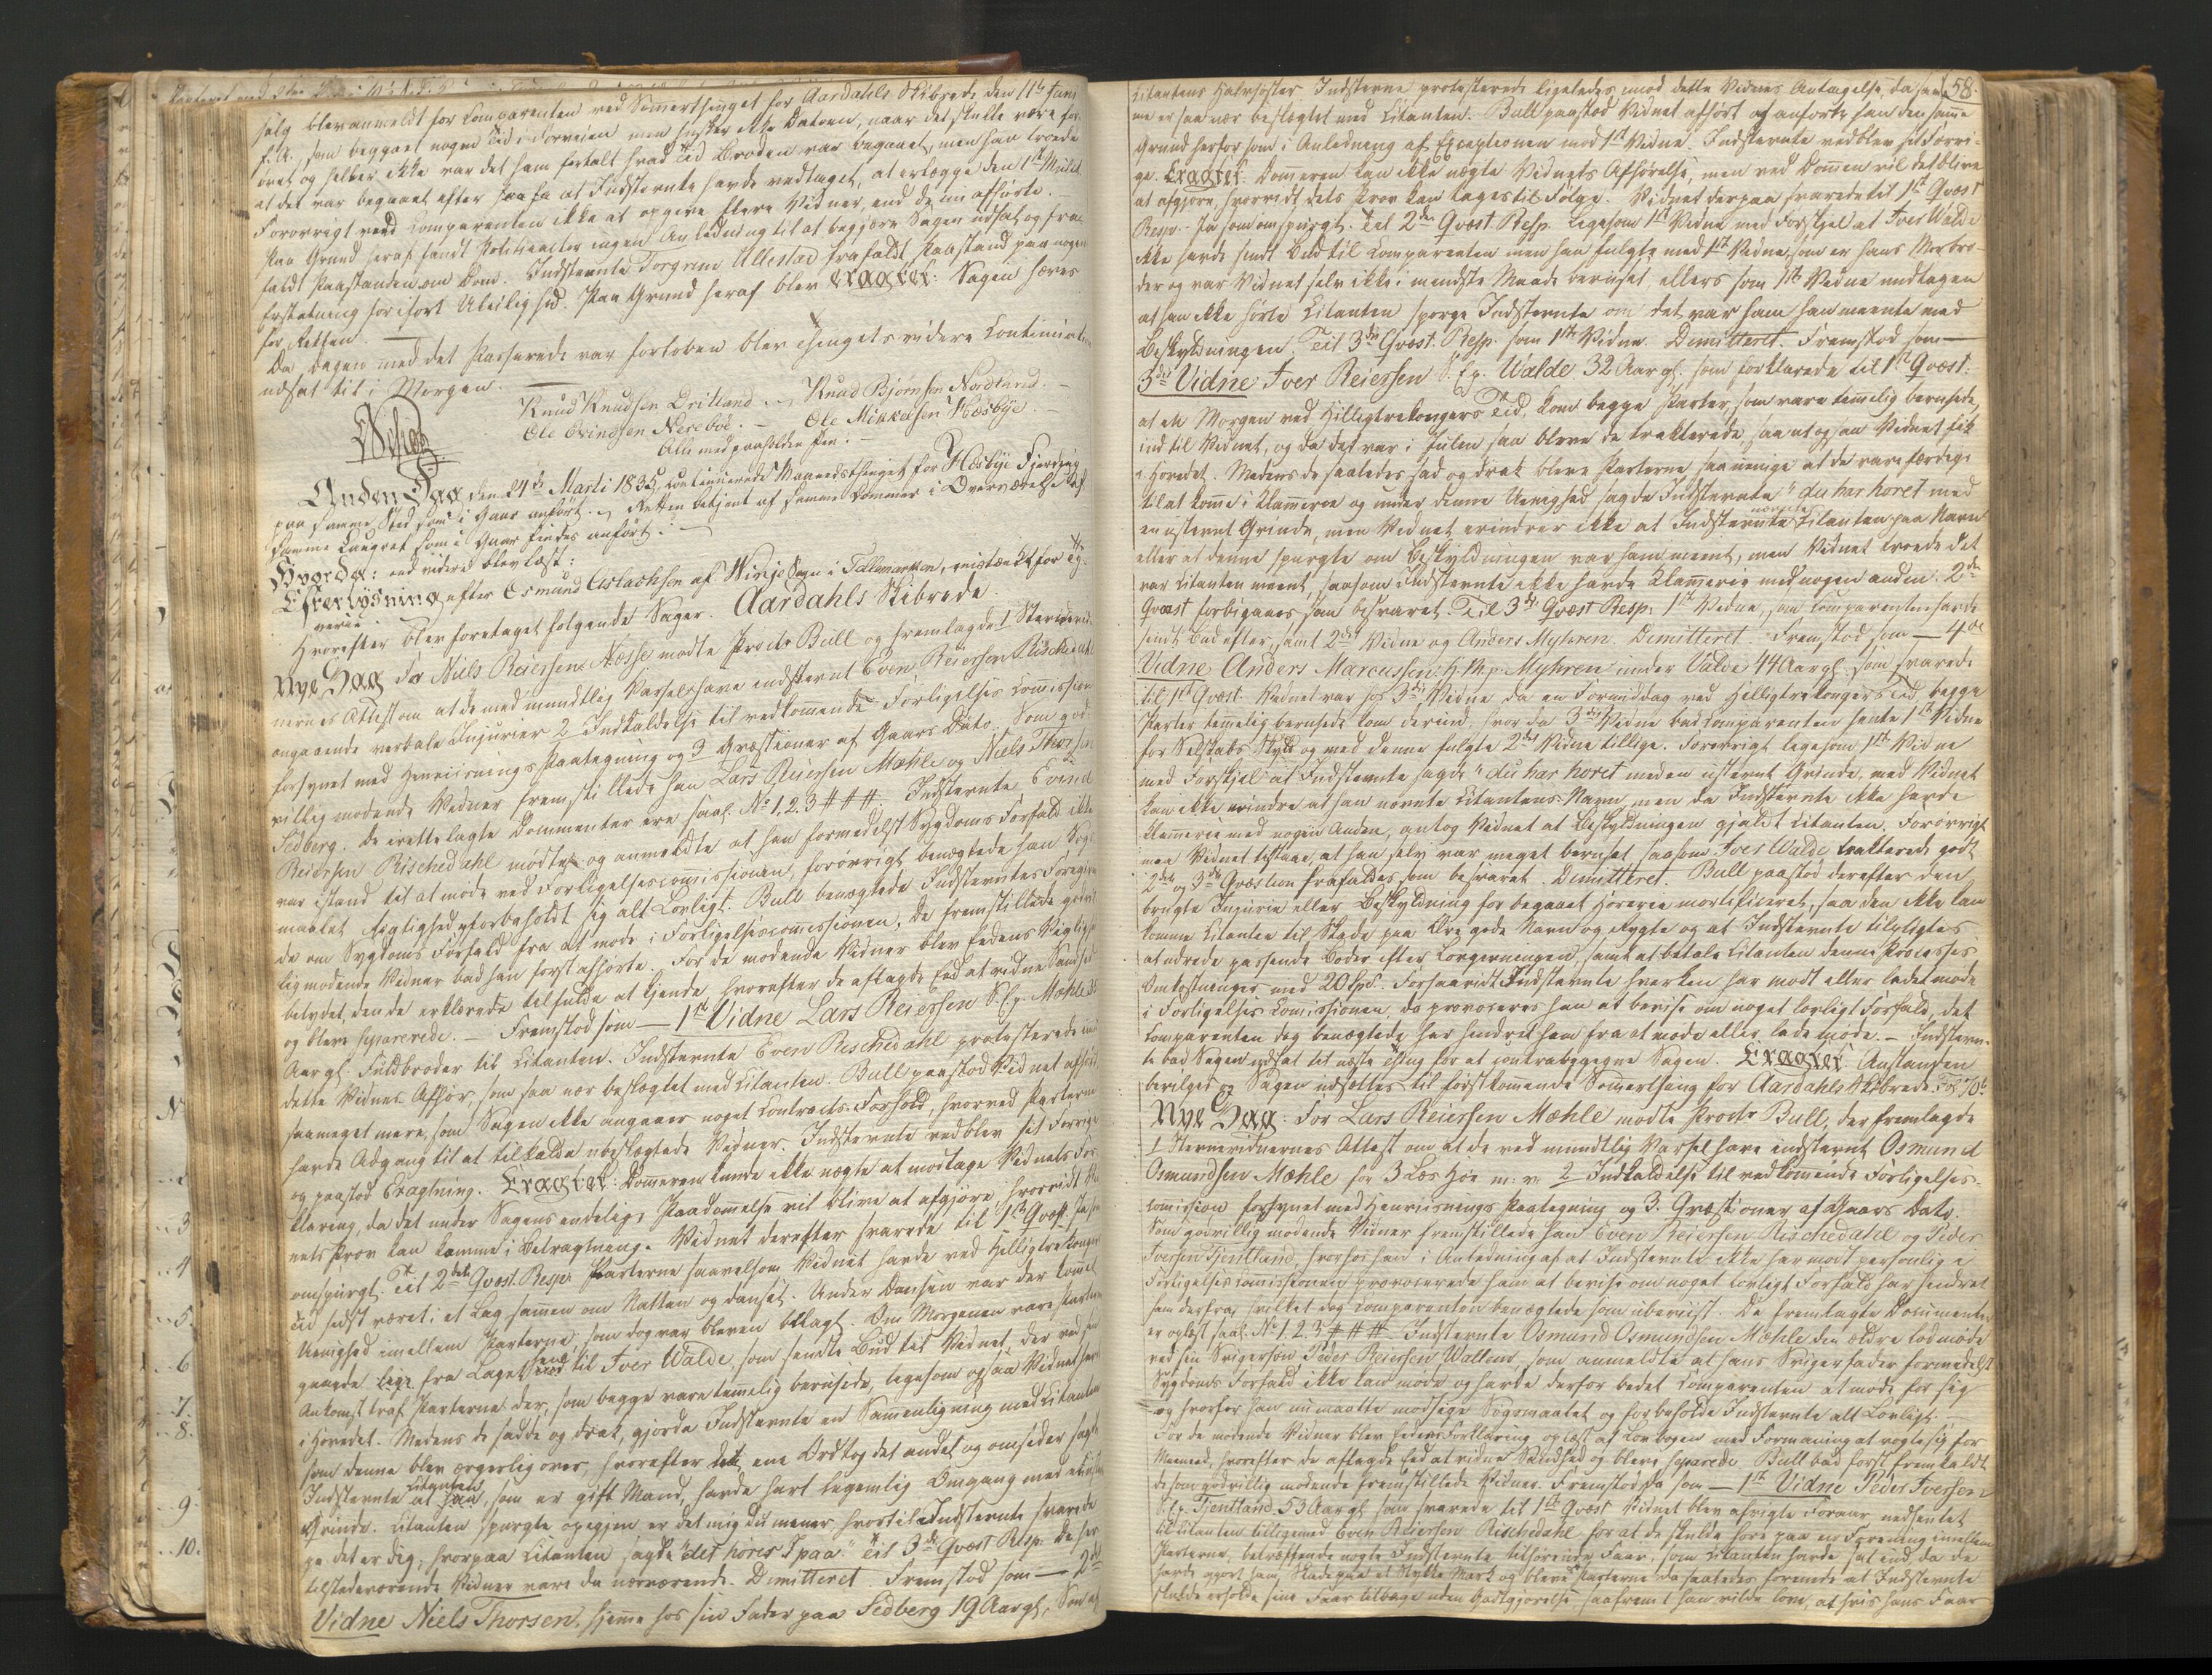 salg blev anmeldt for Comparenten ved Sommerthinget for Aardahls Skibrede den 11te Juni
f. A., som begaaet nogen Tid i Forveien men husker ikke Datoen, naar det skulle være for
øvet og heller ikke var det ham fortalt hvad Tid Broden var begaaet, men han troede
at det var begaaet efter at Indstevnte havde vedtaget, at erlægge den 1ste Mulct.
Forøvrigt veed Comparenten ikke at opgive flere Vidner, end de nu afhørte.
Paa Grund heraf fandt Politieactor ingen Anledning til at begjære Sagen udsat og fra-
faldt Paastanden om Dom. Indstevnte Torgrim Ullestad frafaldt Paastand paa nogen
Erstatning for isort Uleilighed. Paa Grund heraf blev Eragtet: Sagen hæves
for Retten.
Da Dagen med det Passerede var forløben blev Thingets videre Continuation
udsat til i Morgen.
Knud Knudsen Dritland. Knud Bjørnsen Nordland.
Ole Evindsen Nesebøe. Ole Mikkelsen Hæsbye.
Alle med paaholden Pen.
Schiøtz
Anden Dag den 24de Marti 1835, continuerede Maanedsthinget for Hæsbye Fjerding
paa samme Sted som i Gaar anført. Retten betjent af samme Dommer i Overværelse af
samme Laugret som i Gaar findes anført:
Hvorda: end videre blev læst:
Efterlysning efter Osmund Aslachsen af Winje Sogn i Tellemarken, mistænkt for Ty-
verie.
Hvorefter blev foretaget følgende Sager. Aardahls Skibrede.
Nye Sag For Niels Reiersen Næsse mødte Procttr Bull og fremlagde 1 Stevnevid-
nernes Attest om at de med mundtlig Varsel have indstevnt Even Reiersen Rischedahl
angaaende verbale Injurier 2 Indkaldelse til vedkommende Forligelses Commission
forsynet med Henviisnings Paategning og 3 Qvæstioner af Gaars Dato. Som god-
villig mødende Vidner fremstillede han Lars Reiersen Mæhle og Niels Thorsen
Sedberg. De irettelagte Dommenter ere saal. No 1. 2. 3 ###. Indstevnte Evind
Reiersen Rischedahl mødte og anmeldte at han formedelst Sygdoms Forfald ikke
var istand til at møde ved Forligelsescommissionen, forøvrigt benægtede han Søgs-
maalet Rigtighed og forbeholdt sig alt Lovligt. Bull benægtede Indstevntes Foregiven-
de om Sygdoms Forfald fra at møde i Forligelsescommissionen, de fremstillede godvil-
lig mødende Vidner bad han først afhørte. For de mødende Vidner blev Eedens Vigtighed
betydet, den de erklærede tilfulde at kjende, hvorefter de aflagde Eed at vidne Sandhed
og bleve separerede. – Fremstod som — 1ste Vidne Lars Reiersen S. Ep. Mæhle 35
Aar gl. Fuldbroder til Citanten. Indstevnte Even Rischedahl protesterede mod
dette Vidnes Afhør, som saa nær beslægtet med Citanten. Bull paastod Vidnet afhørt
saameget mere, som Sagen ikke angaaer noget Contracts-Forhold, hvorved Parterne
havde Adgang til at tilkalde ubeslægtede Vidner. Indstevnte vedblev sit Forrige
og paastod Eragtning. Eragtet: Dommeren kunde ikke nægte at modtage Vidnets For-
klaring, da det under Sagens endelige Paadømmelse vil blive at afgjøre, hvorvidt Vid-
nets Prov kan komme i Betragtning. Vidnet derefter svarede til 1ste Qvæst. Ja som
omspurgt. Til 2den Qvæst. Resp: Parterne saavelsom Vidnet havde ved Helligtrekongers
Tid sidst været i et Lag sammen om Natten og dandset. Under Dandsen var der kommet
Uenighed imellem Parterne, som dog var bleven bilagt. Om Morgenen vare Parterne
gaaede lige fra Laget hen til Iver Walde, som sendte Bud til Vidnet, der ved sin
Ankomst traf Parterne der, som begge vare temmelig berusede, ligesom ogsaa Vidnet havde
i Hovedet. Medens de sadde og drak, gjorde Indstevnte en Sammenligning med Citanten
som denne blev ærgerlig over, hvorefter det ene Ord tog det andet og omsider sagde
Indstevnte at Citanten, som er gift Mand, havde havt legemlig Omgang med en ustevnt
Qvinde. Citanten spurgte opigjen er det mig du mener hvortil Indstevnte svarede
ja det er dig; hvorpaa Citanten sagde "det hører I paa." Til 3de Qvæst Resp. De her
tilstedeværende Vidner vare da nærværende. Dimitteret. Fremstod som — 2det
Vidne Niels Thorsen, hjemme hos sin Fader paa Sedberg 19 Aar gl., Søn af
58.
Citantens Halvsøster. Indstevnte protesterede ligeledes mod dette Vidnes Antagelse, da sam-
me er saa nær beslægtet med Citanten. Bull paastod Vidnet afhørt og anførte han den samme
Grund herfor som i Anledning af Exceptionen mod 1ste Vidne. Indstevnte vedblev sit Forri-
ge. Eragtet: Dommeren kan ikke nægte Vidnets Afhørelse, men ved Dommen vil det blive
at afgjøre, hvorvidt dets Prov kan tages til Følge. Vidnet derpaa svarede til 1ste Qvæst
Resp:- Ja som omspurgt. Til 2den Qvæst. Resp. ligesom 1ste Vidne med Forskjel at Iver Walde
ikke havde sendt Bud til Comparenten men han fulgte med 1ste Vidne, som er hans Morbro-
der og var Vidnet selv ikke i mindste Maade beruset, ellers som 1ste Vidne undtagen
at han ikke hørte Citanten spørge Indstevnte om det var ham han meente med
Beskyldningen. Til 3die Qvæst. Resp. som 1ste Vidne. Dimitteret. Fremstod som —
3die Vidne Iver Reiersen S. Ep. Walde 32 Aar gl. som forklarede til 1ste Qvæst.
at en Morgen ved Hilligtrekongers Tid, kom begge Parter, som vare temmelig berusede,
ind til Vidnet, og da det var i Julen saa bleve de trakterede, saa at ogsaa Vidnet fik
i Hovedet. Medens de saaledes sad og drak bleve Parterne saa uenige at de vare færdige
til at komme i Klammerie og under denne Uenighed sagde Indstevnte "du har horet med
en ustevnt Qvinde, men Vidnet erindrer ikke at Indstevnte nævnte Citanten paa Navn
eller at denne spurgte om Beskyldningen var ham meent, men Vidnet troede det
var Citanten meent, saasom Indstevnte ikke havde Klammerie med nogen anden. 2den
Qvæst forbigaaes, som besvaret. Til 3die Qvæst Resp: 1ste Vidne, som Comparenten havde
sendt Bud efter, samt 2det Vidne og Anders Myhren. Dimitteret. Fremstod som — 4de
Vidne Anders Marcussen H. M. p. Myhren under Valde 44 Aar gl. som svarede
til 1ste Qvæst: Vidnet var hos 3die Vidne da en Formiddag ved Helligtrekongers Tid begge
Parter temmelig berusede kom derind, hvor da 3die Vidne bad Comparenten hente 1ste Vidne
for Selskabs Skyld og med denne fulgte 2det Vidne tillige. Forøvrigt ligesom 1ste Vidne
med Forskjel at Indstevnte sagde "du har horet med en ustevnt Qvinde, med Vidnet
kan ikke erindre at han nævnte Citantens Navn, men da Indstevnte ikke havde
Klammerie med nogen Anden, antog Vidnet at Beskyldningen gjaldt Citanten. Forøvrigt
maa Vidnet tilstaae, at han selv var meget beruset, saasom Iver Walde trakterede godt
2den og 3die Qvæstion frafaldes, som besvaret. Dimitteret. Bull paastod derefter den
brugte Injurie eller Beskyldning for begaaet Horerie mortificeret, saa den ikke kan
komme Citanten til Skade paa Ære gode Navn og Rygte og at Indstevnte tilpligtes
at udrede passende Bøder efter Lovgivningen, samt at betale Citanten denne Processes
Omkostninger med 20 Spd. Forsaavidt Indstevnte hverken har mødt eller ladet møde
i Forligelses Commissionen, da provoceres han at bevise om noget lovligt Forfald, det
Comparenten dog benægtede, har hindret ham fra at møde eller lade møde. – Indstevn-
te bad Sagen udsat til næste Thing for at contrabygegne Sagen. Eragtet: Anstanden
bevilges og Sagen udsættes til førstkommende Sommerthing for Aardahls Skibrede. Fol. 70.
Nye Sag: For Lars Reiersen Mæhle mødte Proctr Bull, der fremlagde
1 Stevnevidnernes Attest om at de ved mundtlig Varsel have indstevnt Osmund
Osmundsen Mæhle for 3 Læs Høe m: v: 2 Indkaldelse til vedkommende Forligelses-
commission forsynet med Henviisnings Paategning og 3. Qvæstioner af Gaars Dato.
Som godvillig mødende Vidner fremstillede han Even Reiersen Rischedahl og Peder
Iversen Tjentland, hvorhos han i Anledning af at Indstevnte ikke har mødt personlig i
Forligelsescommissionen provocerede ham at bevise om noget lovligt Forfald har hindret
ham derfra, hvilket dog Comparenten benægtede som ubeviist. De fremlagte Documenter
er oplæst saal. No 1. 2. 3 ###. Indstevnte Osmund Osmundsen Mæhle den ældre lod møde
ved sin Svigersøn Peder Reiersen Wallend, som anmeldte at hans Svigerfader formedelst
Sygdoms Forfald ikke kan møde og havde derfor bedet Comparenten at møde for sig
og hvorfor han nu maatte modsige Søgsmaalet og forbeholde Indstevnte alt Lovligt.
For de mødende Vidner blev Eedens Forklaring oplæst af Lovbogen med Formaning at vogte sig for
Meeneed, hvorefter de aflagde Eed at vidne Sandhed og bleve separerede. Bull bad først fremkaldt
de som godvillig mødende fremstillede Vidner. Fremstod da som — 1ste Vidne Peder Iversen
S. Ep. Tjentland 53 Aar gl. som svarede til 1ste Qvæst. Vidnet blev afvigte Foraar nedhentet
til Citanten tilligemed Even Reiersen Rischedahl for at de skulde høre paa en Forening imellem
Parterne, betræffende nogle Indstevnte tilhørende Faar, som Citanten havde sat ind, da de
havde gjort ham Skade paa et Stykke Mark og bleve Parterne da saaledes forenede at Indstevnte
skulde erholde sine Faar tilbage uden Godtgjørelse saafremt han vilde love, at hvis hans Faar